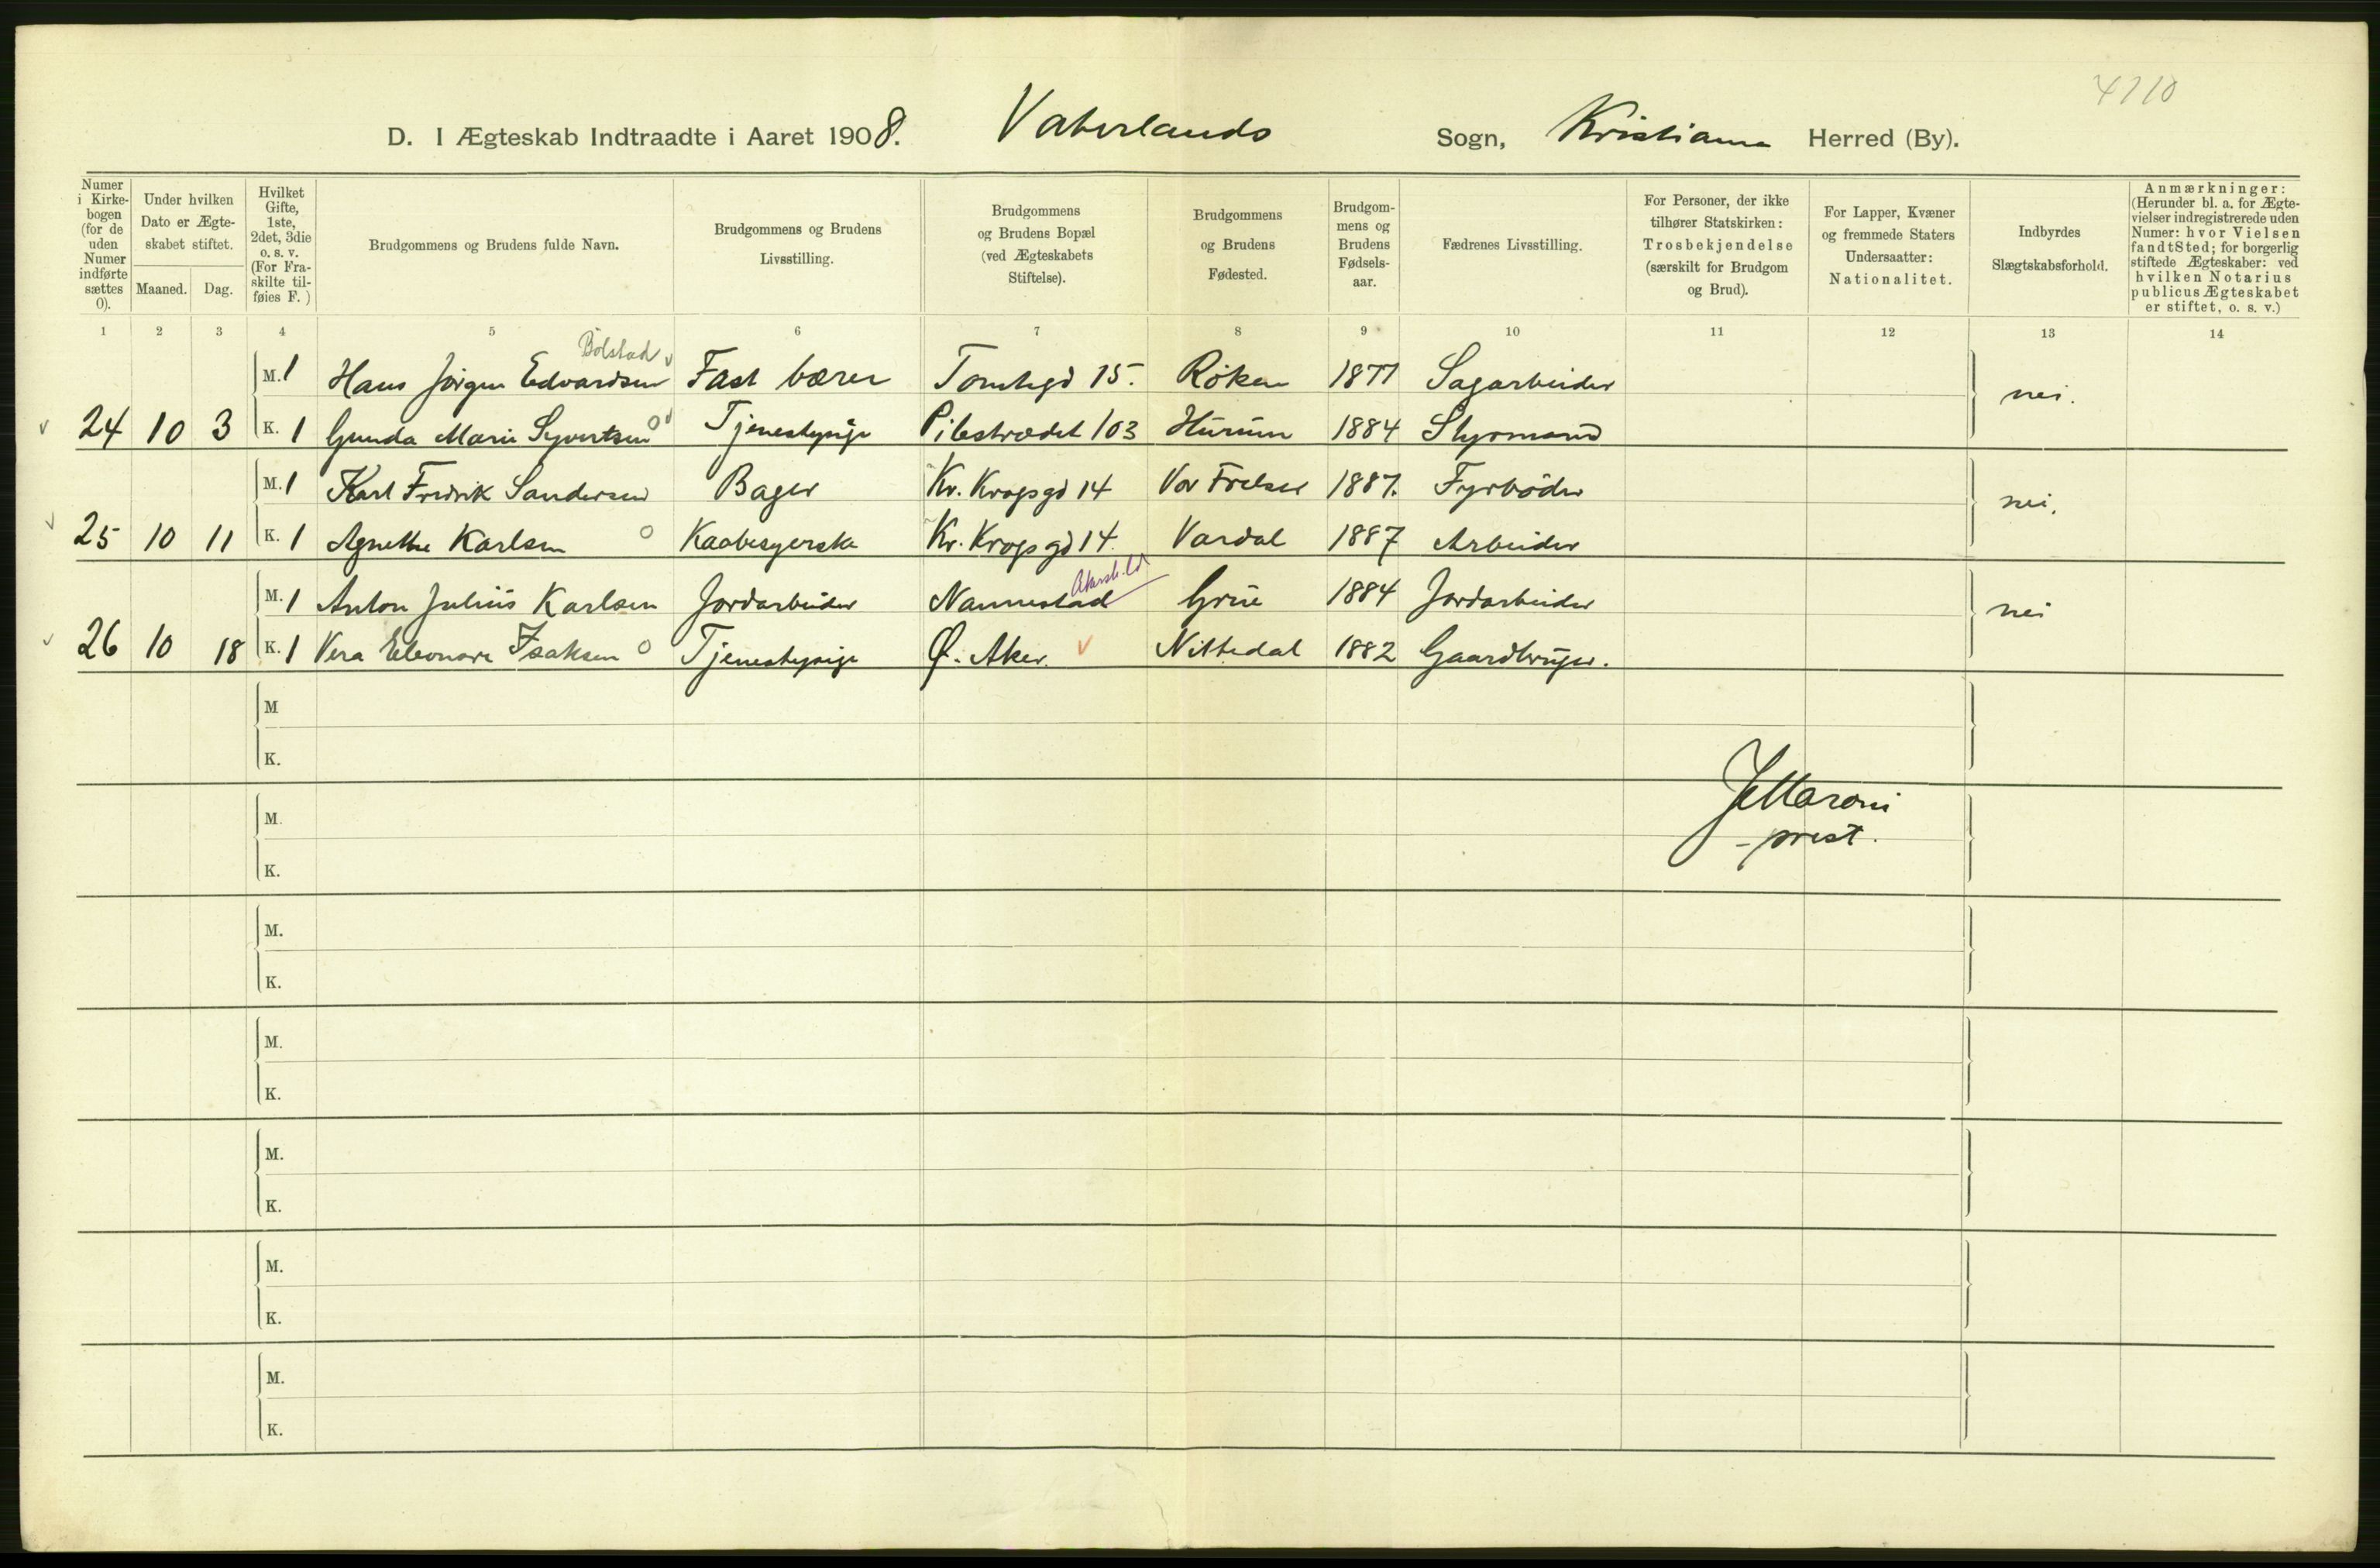 4710
D. I Ægteskab Indtraadte i Aaret 1908. Vaterlands Sogn, Kristiania Herred (By).
Numer i Kirkebogen (for de uden Numer indførte sættes 0).
Under hvilken Dato er Ægteskabet stiftet.
Maaned. Dag.
Hvilket Gifte, 1ste, 2det, 3die o. s. v. (For Fraskilte tilføies F.)
Brudgommens og Brudens fulde Navn.
Brudgommens og Brudens Livsstilling.
Brudgommens og Brudens Bopæl (ved Ægteskabets Stiftelse).
Brudgommens og Brudens Fødested.
Brudgommens og Brudens Fødselsaar.
Fædrenes Livsstilling.
For Personer, der ikke tilhører Statskirken: Trosbekjendelse (særskilt for Brudgom og Brud).
For Lapper, Kvæner og fremmede Staters Undersaatter: Nationalitet.
Indbyrdes Slægtskabsforhold.
Anmærkninger: (Herunder bl. a. for Ægtevielser indregistrerede uden Numer: hvor Vielsen fandt Sted; for borgerlig stiftede Ægteskaber: ved hvilken Notarius publicus Ægteskabet er stiftet, o. s. v.)
1 2 3 4 5 6 7 8 9 10 11 12 13 14
Bölstad
M. 1 Hans Jörgen Edvardsen Fast bærer Tomtegd 15. Röken 1877 Sagarbeider
nei.
24 10 3 K. 1 Gunda Marie Syvertsen Tjenestepige Pilestrædet 103 Hurum 1884 Styrmand
M. 1 Karl Fredrik Sandersen Bager Kr. Krogsgd 14 Vor Frelser 1887. Fyrböder
nei.
25 10 11 K. 1 Agnethe Karlsen Kaabesyerske Kr. Krogsgd 14. Vardal 1887 Arbeider
M. 1 Anton Julius Karlsen Jordarbeider Nannestad Grue 1884 Jordarbeider
nei
26 10 18 K. 1 Vera Eleonore Isaksen Tjenestepige Ø. Aker. Nittedal 1882 Gaardbruger.
M
K.
prest.
M.
K.
M.
K.
M.
K.
M.
K.
M.
K.
M.
K.